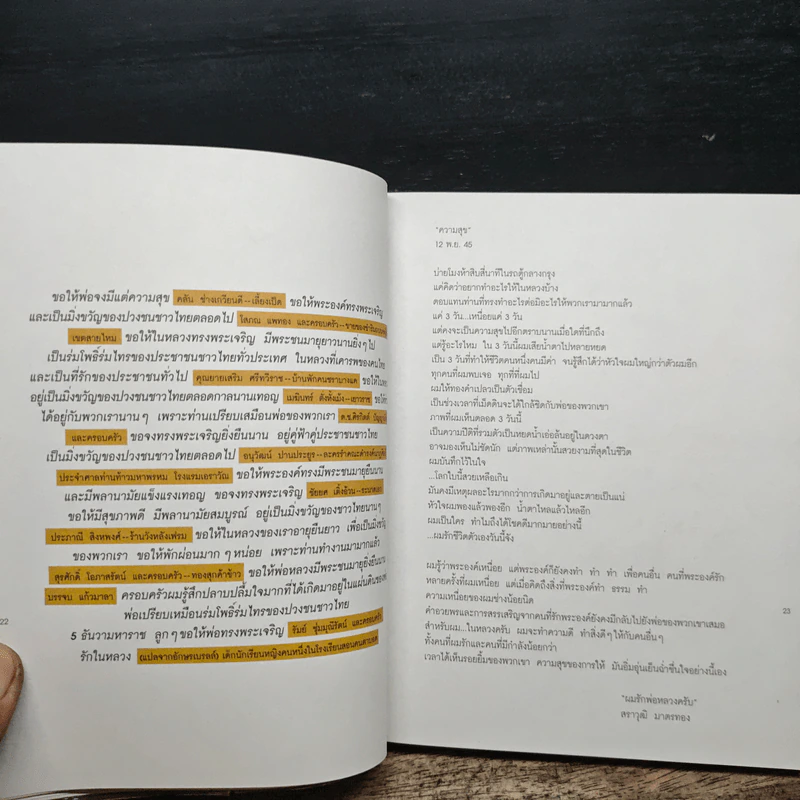 ขอให้พ่อจงมีแต่ความสุข คลัน ช่างเกวียนดี--เลี้ยงเป็ด ขอให้พระองค์ทรงพระเจริญ
และเป็นมิ่งขวัญของปวงชนชาวไทยตลอดไป โสภณ แพทอง และครอบครัว--
เขตสายไหม ขอให้ในหลวงทรงพระเจริญ มีพระชนมายุยาวนานยิ่งๆ ไป
เป็นร่มโพธิ์ร่มไทรของประชาชนชาวไทยทั่วประเทศ ในหลวงที่เคารพของคนไทย
และเป็นที่รักของประชาชนทั่วไป คุณยายเสริม ศรีทวีราช--บ้านพักคนชราบางแค ขอให้ใน
อยู่เป็นมิ่งขวัญของปวงชนชาวไทยตลอดกาลนานเทอญ เมฆินทร์ ตังทั้งเม้ง--เยาวราช
ได้อยู่กับพวกเรานานๆ เพราะท่านเปรียบเสมือนพ่อของพวกเรา ด.ช.ศิรกิตติ์
และครอบครัว ขอจงทรงพระเจริญยิ่งยืนนาน อยู่คู่ฟ้าคู่ประชาชนชาวไทย
เป็นมิ่งขวัญของปวงชนชาวไทยตลอดไป อนุวัฒน์ ปานประยูร--ละครรำคณะ
ประจำศาลท่านท้าวมหาพรหม โรงแรมเอราวัณ ขอให้พระองค์ทรงมีพระชนมายุยืนนาน
และมีพลานามัยแข็งแรงเทอญ ขอจงทรงพระเจริญ ชัยยศ เติ้งอ้วน--ระนาดเอก
ขอให้มีสุขภาพดี มีพลานามัยสมบูรณ์ อยู่เป็นมิ่งขวัญของชาวไทยนานๆ
ประภาณี สิงหพงศ์--ร้านวังหลังเฟรม ขอให้ในหลวงของเราอายุยืนยาว เพื่อเป็นมิ่งขวัญ
ของพวกเรา ขอให้พักผ่อนมากๆ หน่อย เพราะท่านทำงานมามากแล้ว
สุรศักดิ์ โอภาสรัตน์ และครอบครัว--ทองสุกค้าข้าว ขอให้พ่อหลวงมีพระชนมายุยิ่งยืนนาน
บรรจบ แก้วมาลา ครอบครัวผมรู้สึกปลาบปลื้มใจมากที่ได้เกิดมาอยู่ในแผ่นดินของพ่อ
พ่อเปรียบเหมือนร่มโพธิ์ร่มไทรของปวงชนชาวไทย
5 ธันวามหาราช ลูกๆ ขอให้พ่อทรงพระเจริญ รัมย์ ชุ่มมุณีรัตน์ และครอบครัว
รักในหลวง (แปลจากอักษรเบรลล์) เด็กนักเรียนหญิงคนหนึ่งในโรงเรียนสอนคนตาบอด
22
"ความสุข"
12 พ.ย. 45
บ่ายโมงห้าสิบสี่นาทีในรถตู้กลางกรุง
แค่คิดว่าอยากทำอะไรให้ในหลวงบ้าง
ตอบแทนท่านที่ทรงทำอะไรต่อมิอะไรให้พวกเรามามากแล้ว
แค่ 3 วัน...เหนื่อยแค่ 3 วัน
แต่คงจะเป็นความสุขไปอีกตราบนานเมื่อใดที่นึกถึง
แต่รู้อะไรไหม ใน 3 วันนี้ผมเสียน้ำตาไปหลายหยด
เป็น 3 วันที่ทำให้ชีวิตคนหนึ่งคนมีค่า จนรู้สึกได้ว่าหัวใจผมใหญ่กว่าตัวผมอีก
ทุกคนที่ผมพบเจอ ทุกที่ที่ผมไป
ผมให้ทองคำเปลวเป็นตัวเชื่อม
เป็นช่วงเวลาที่เม็ดดินจะได้ใกล้ชิดกับพ่อของพวกเขา
ภาพที่ผมเห็นตลอด 3 วันนี้
เป็นความปีติที่รวมตัวเป็นหยดน้ำเอ่อล้นอยู่ในดวงตา
อาจมองเห็นไม่ชัดนัก แต่ภาพเหล่านั้นสวยงามที่สุดในชีวิต
ผมบันทึกไว้ในใจ
...โลกใบนี้สวยเหลือเกิน
มันคงมีเหตุผลอะไรมากกว่าการเกิดมาอยู่และตายเป็นแน่
หัวใจผมพองแล้วพองอีก น้ำตาไหลแล้วไหลอีก
ผมเป็นใคร ทำไมถึงได้โชคดีมากมายอย่างนี้
...ผมรักชีวิตตัวเองวันนี้จัง
ผมรู้ว่าพระองค์เหนื่อย แต่พระองค์ก็ยังคงทำ ทำ ทำ เพื่อคนอื่น คนที่พระองค์รัก
หลายครั้งที่ผมเหนื่อย แต่เมื่อคิดถึงสิ่งที่พระองค์ทำ ธรรม ทำ
ความเหนื่อยของผมช่างน้อยนิด
คำอวยพรและการสรรเสริญจากคนที่รักพระองค์ยังคงมีกลับไปยังพ่อของพวกเขาเสมอ
สำหรับผม...ในหลวงครับ ผมจะทำความดี ทำสิ่งดีๆ ให้กับคนอื่นๆ
ทั้งคนที่ผมรักและคนที่มีกำลังน้อยกว่า
เวลาได้เห็นรอยยิ้มของพวกเขา ความสุขของการให้ มันอิ่มอุ่นเย็นฉ่ำชื่นใจอย่างนี้เอง
"ผมรักพ่อหลวงครับ"
สราวุฒิ มาตรทอง
23